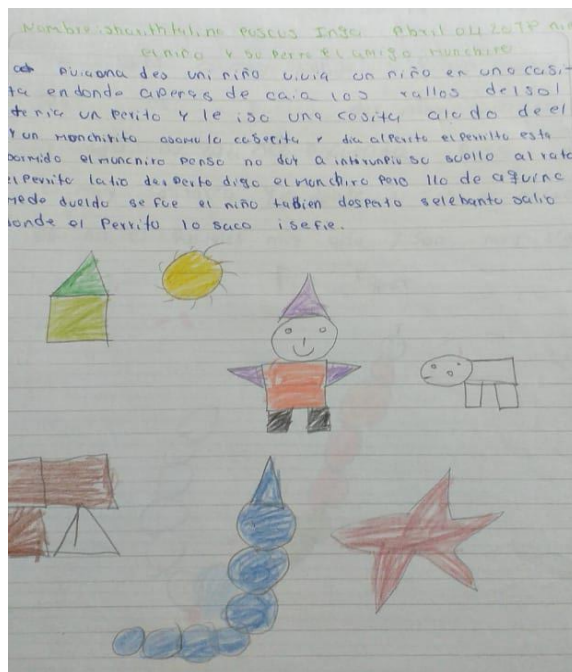 Nombre: sharith Pascus Inga Abril 04
el niño y su perro el amigo munchiro
niño vivia un niño en una casi-
ta en donde aperas de caia los rallos del sol
tenia un perito y le iso una cosita alado de el
y un monchirito asomo la casecita y dia al perito el perrito esta
dormido el munchiro penso no doy a interunpir su sueño al rato
el perrito latio desperto digo el munchiro pero llo de aguine
dueldo se fue el niño tabien desperto selebanto salio
donde el perrito lo saco isefie.